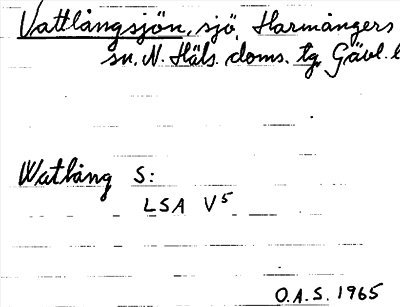 Vattlångsjön, sjö, Harmångers
sn. N. Häls. doms. tg Gävl. l
Watlång S:
LSA V5
O.A.S. 1965